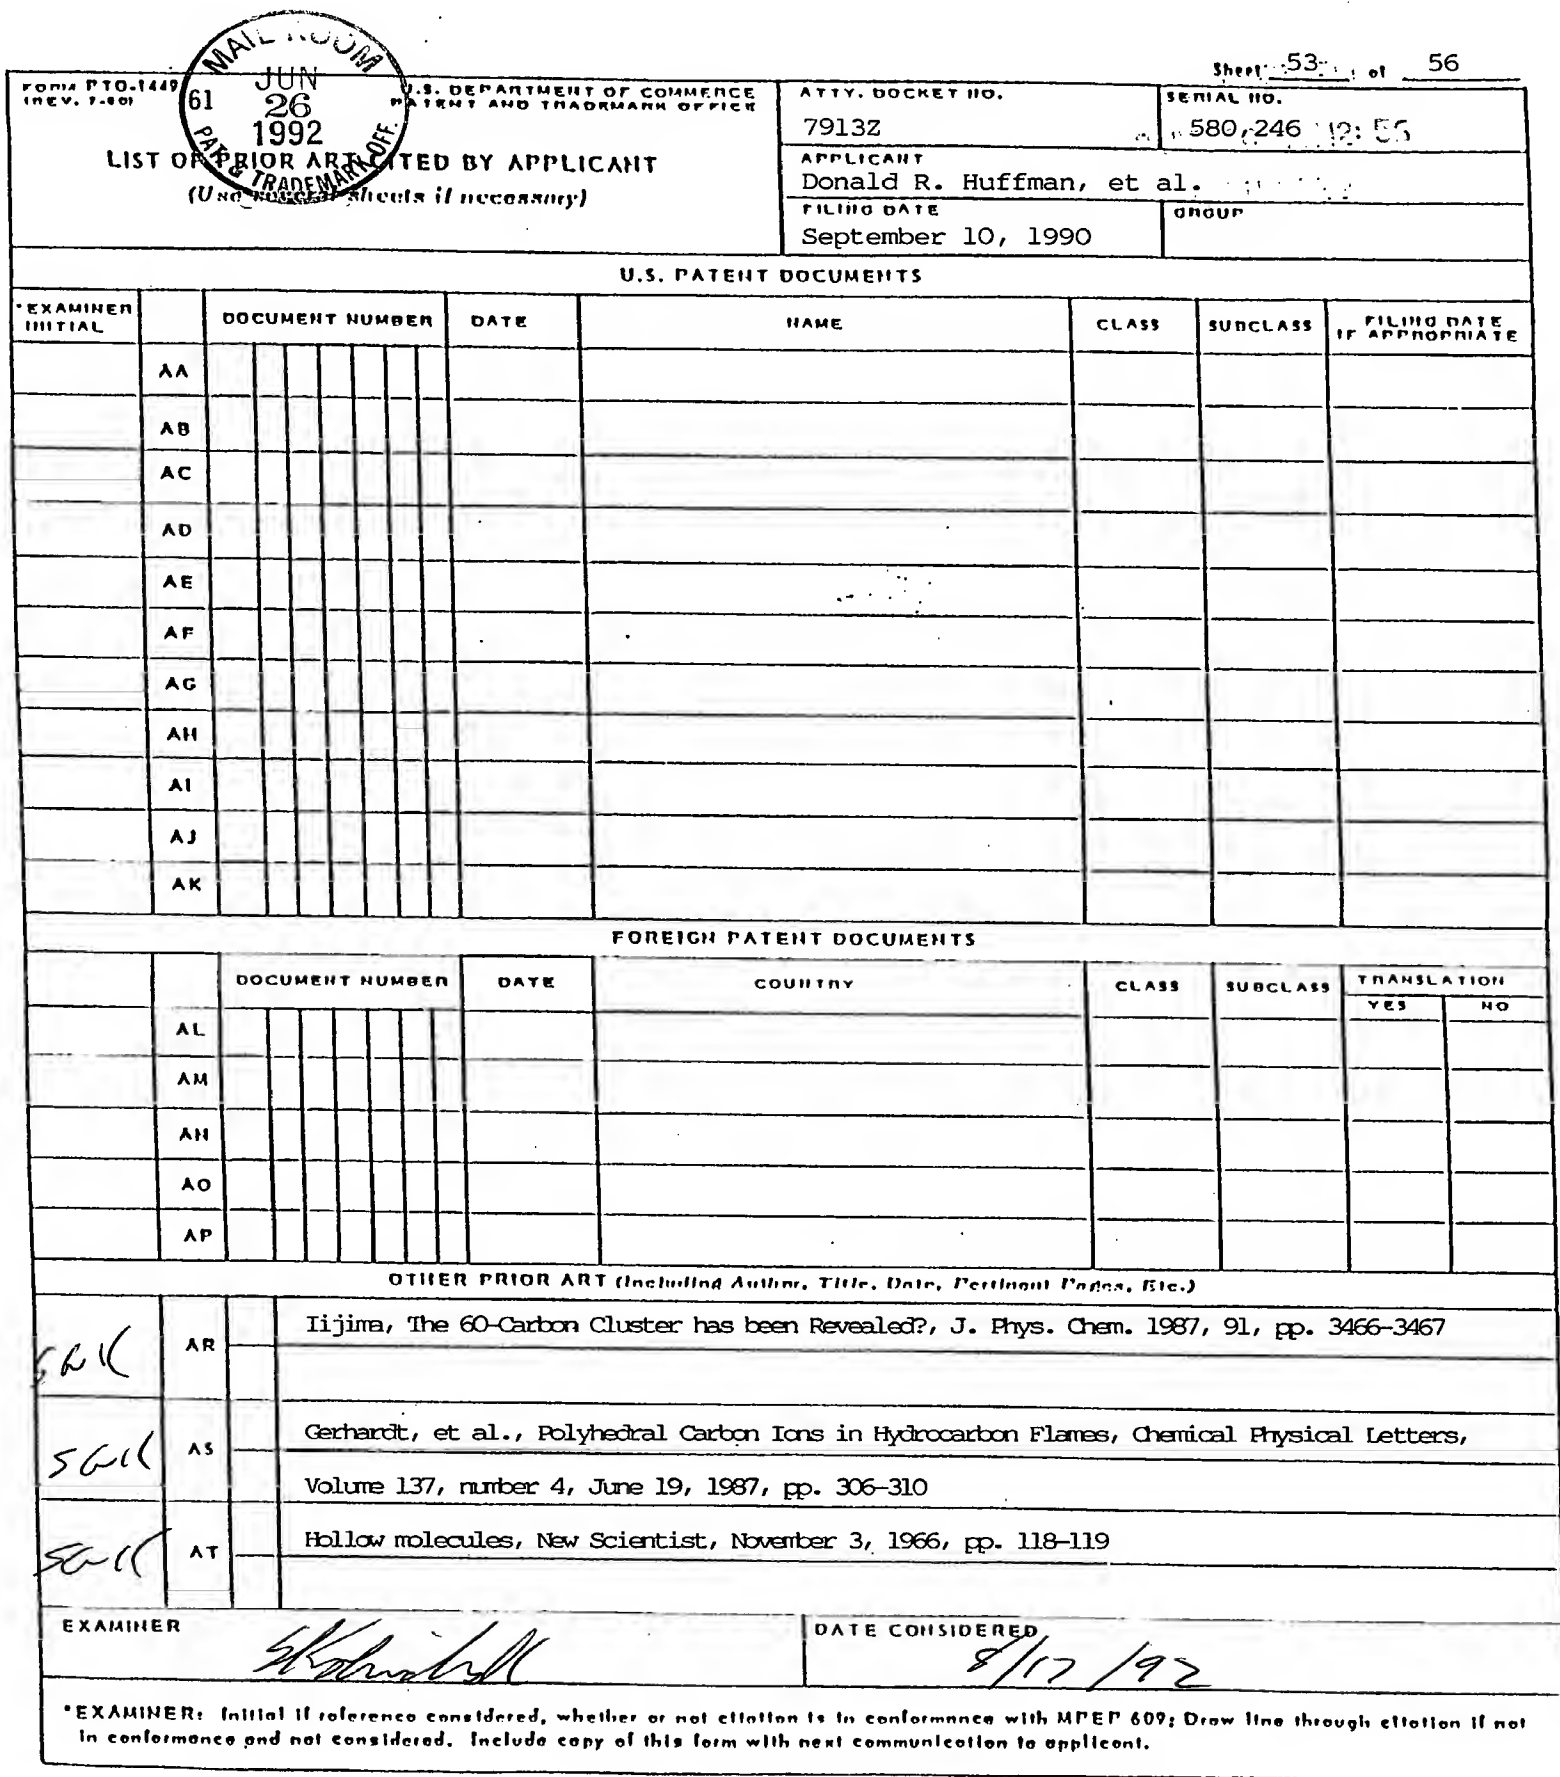 Sheet 53 of 56
FORM PTO-1449
(REV. 7-80)
U.S. DEPARTMENT OF COMMERCE
PATENT AND TRADEMARK OFFICE
MAIL ROOM
61
JUN
26
1992
PAT. & TRADEMARK OFF.
LIST OF PRIOR ART CITED BY APPLICANT
(Use several sheets if necessary)
ATTY. DOCKET NO.
7913Z
SERIAL NO.
580,246
APPLICANT
Donald R. Huffman, et al.
FILING DATE
September 10, 1990
GROUP
U.S. PATENT DOCUMENTS
*EXAMINER INITIAL DOCUMENT NUMBER DATE NAME CLASS SUBCLASS FILING DATE IF APPROPRIATE
AA
AB
AC
AD
AE
AF
AG
AH
AI
AJ
AK
FOREIGN PATENT DOCUMENTS
DOCUMENT NUMBER DATE COUNTRY CLASS SUBCLASS TRANSLATION
YES NO
AL
AM
AN
AO
AP
OTHER PRIOR ART (Including Author, Title, Date, Pertinent Pages, Etc.)
SGK AR Iijima, The 60-Carbon Cluster has been Revealed?, J. Phys. Chem. 1987, 91, pp. 3466-3467
SGK AS Gerhardt, et al., Polyhedral Carbon Ions in Hydrocarbon Flames, Chemical Physical Letters,
Volume 137, number 4, June 19, 1987, pp. 306-310
SGK AT Hollow molecules, New Scientist, November 3, 1966, pp. 118-119
EXAMINER
DATE CONSIDERED
8/17/92
*EXAMINER: Initial if reference considered, whether or not citation is in conformance with MPEP 609; Draw line through citation if not
in conformance and not considered. Include copy of this form with next communication to applicant.